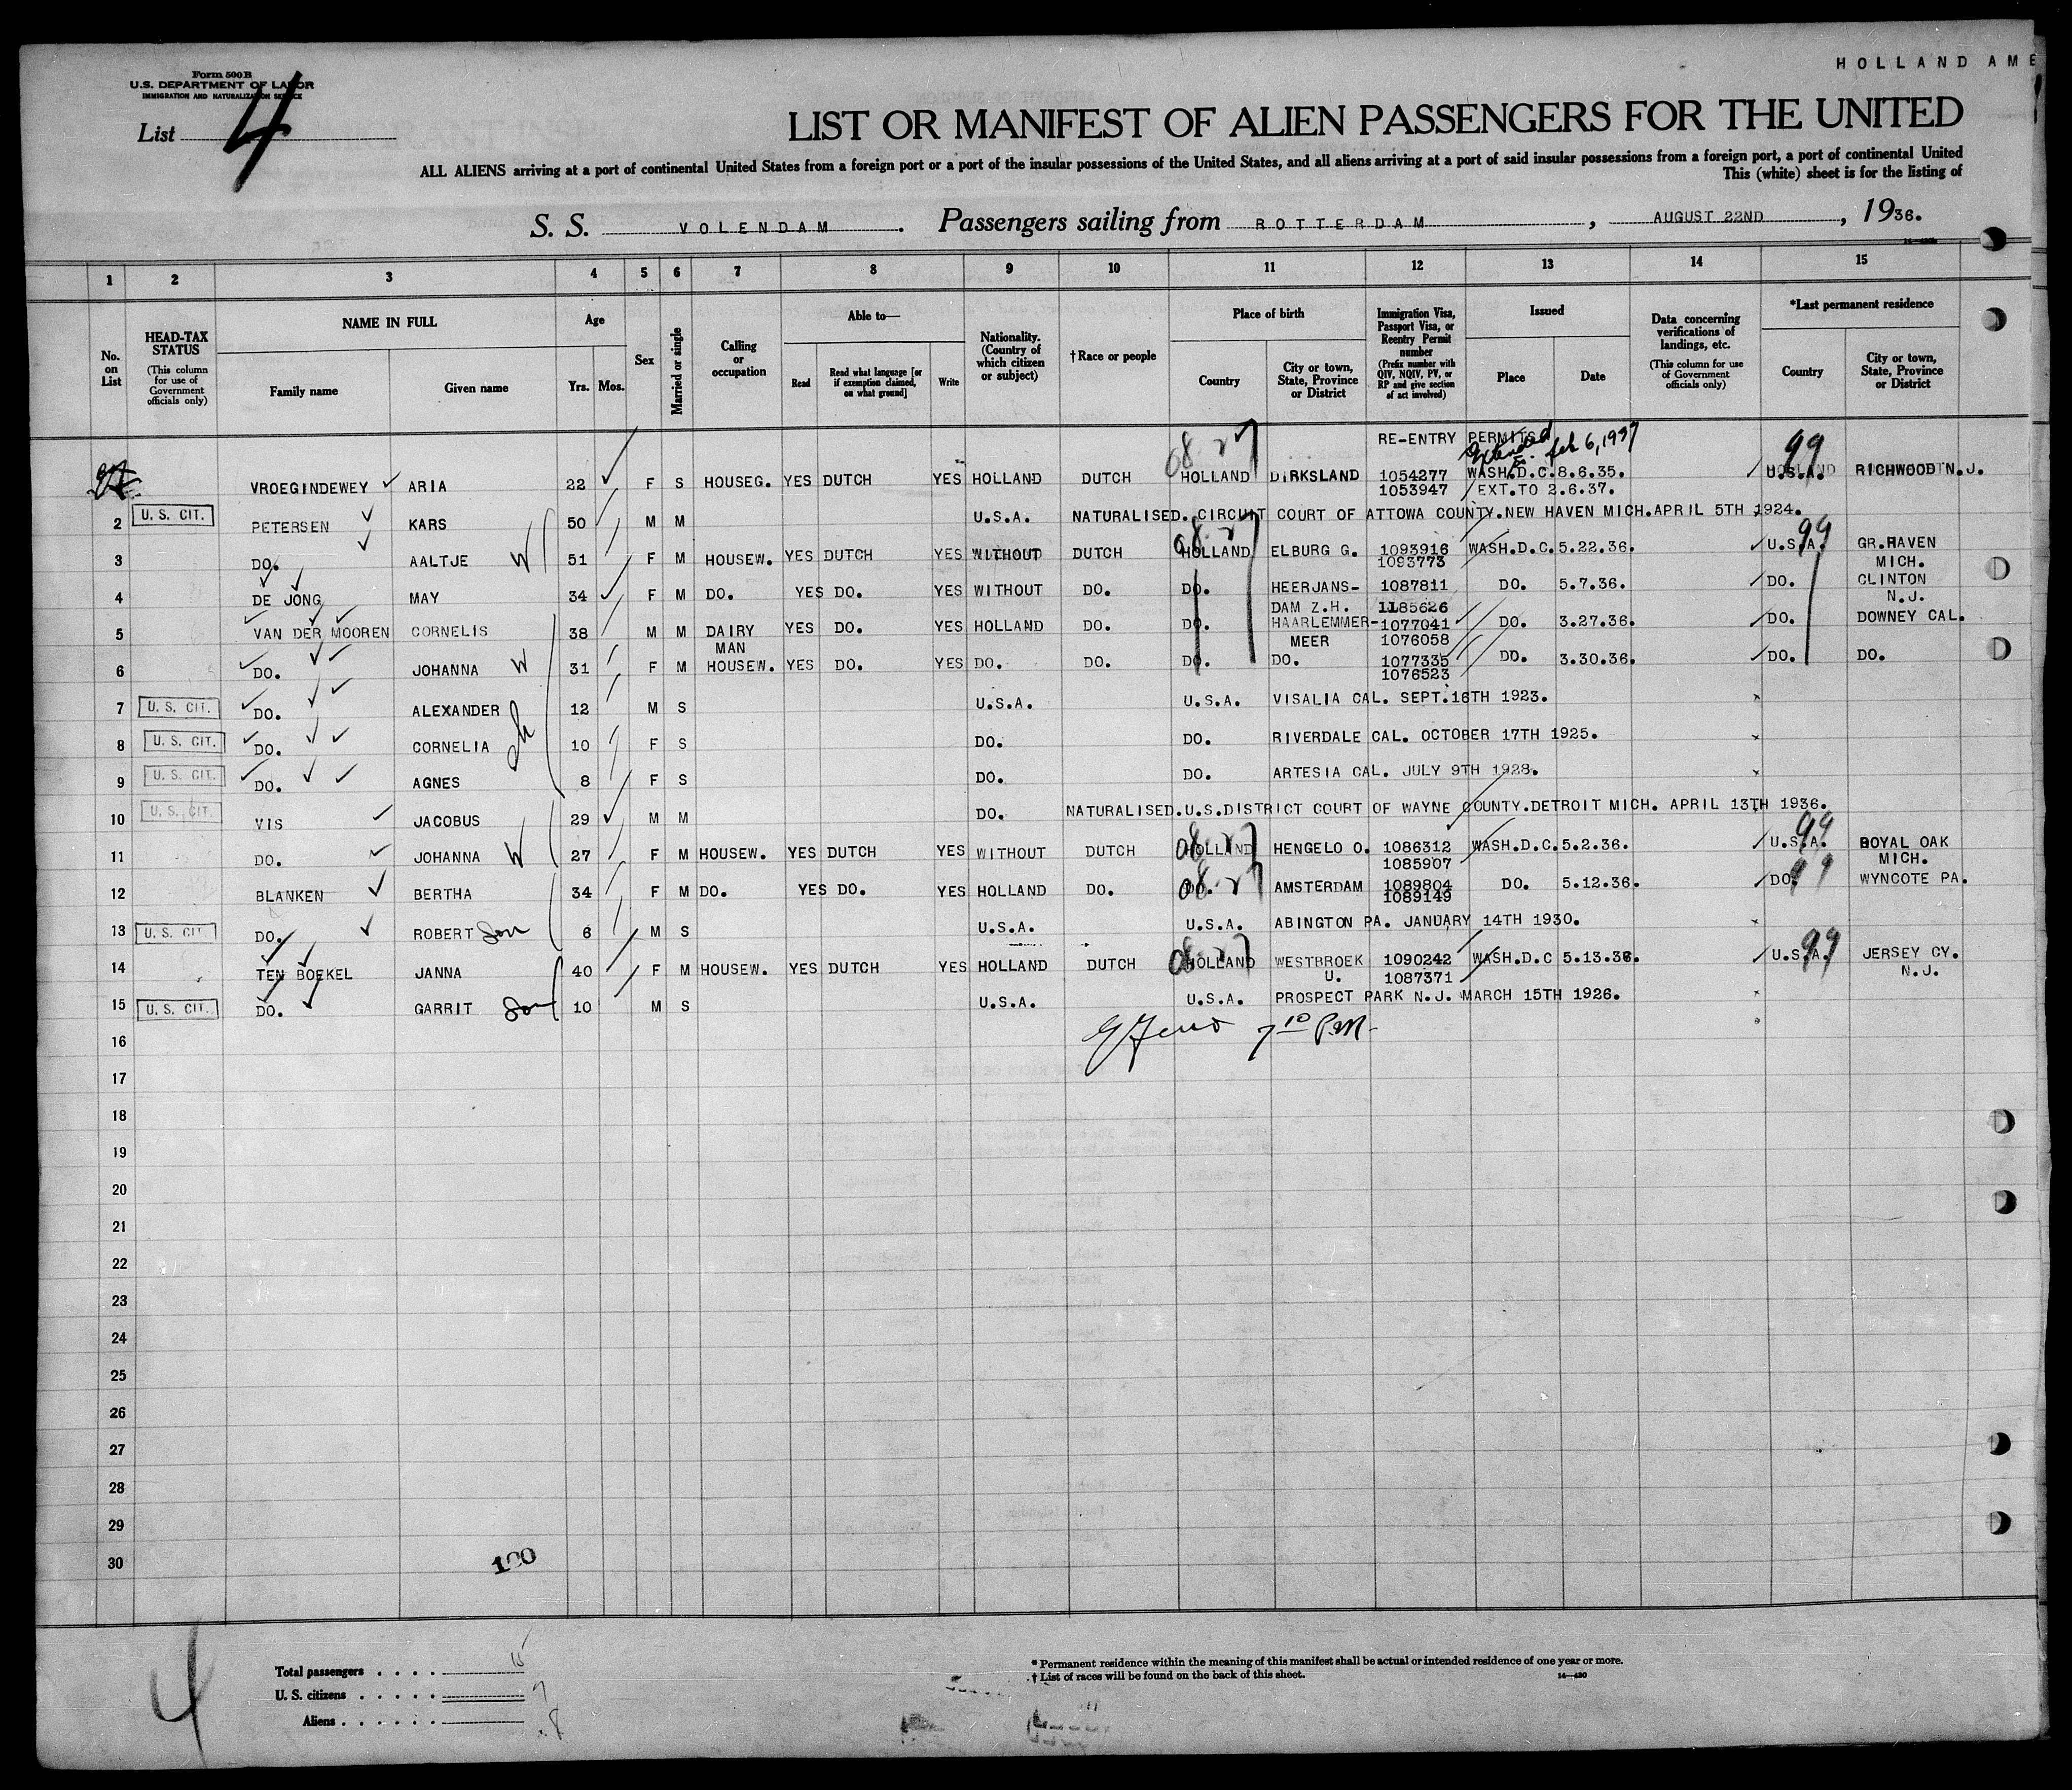 HOLLAND AME
Form 500 B
U.S. DEPARTMENT OF LABOR
IMMIGRATION AND NATURALIZATION SERVICE
List 4
LIST OR MANIFEST OF ALIEN PASSENGERS FOR THE UNITED
ALL ALIENS arriving at a port of continental United States from a foreign port or a port of the insular possessions of the United States, and all aliens arriving at a port of said insular possessions from a foreign port, a port of continental United
This (white) sheet is for the listing of
S. S. VOLENDAM . Passengers sailing from ROTTERDAM , AUGUST 22ND , 1936.
1 2 3 4 5 6 7 8 9 10 11 12 13 14 15
No. on List
HEAD-TAX STATUS (This column for use of Government officials only)
NAME IN FULL
Family name Given name
Age
Yrs. Mos.
Sex
Married or single
Calling or occupation
Able to—
Read
Read what language [or if exemption claimed, on what ground]
Write
Nationality. (Country of which citizen or subject)
†Race or people
Place of birth
Country
City or town, State, Province or District
Immigration Visa, Passport Visa, or Reentry Permit number (Prefix number with QIV, NQIV, PV, or RP and give section of act involved)
Issued
Place Date
Data concerning verifications of landings, etc. (This column for use of Government officials only)
*Last permanent residence
Country
City or town, State, Province or District
RE-ENTRY PERMITS
Extended Feb 6, 1937
VROEGINDEWEY ARIA 22 F S HOUSEG. YES DUTCH YES HOLLAND DUTCH HOLLAND DIRKSLAND 1054277 WASH.D.C. 8.6.35. U.S.A. RICHWOOD N.J.
1053947 EXT.TO 2.6.37.
2 U. S. CIT. PETERSEN KARS 50 M M U.S.A. NATURALISED. CIRCUIT COURT OF ATTOWA COUNTY.NEW HAVEN MICH.APRIL 5TH 1924.
3 DO. AALTJE W 51 F M HOUSEW. YES DUTCH YES WITHOUT DUTCH HOLLAND ELBURG G. 1093916 WASH.D.C. 5.22.36. U.S.A. GR.HAVEN
1093773 MICH.
4 DE JONG MAY 34 F M DO. YES DO. YES WITHOUT DO. DO. HEERJANS- 1087811 DO. 5.7.36. DO. CLINTON
DAM Z.H. 1185626 N.J.
5 VAN DER MOOREN CORNELIS 38 M M DAIRY YES DO. YES HOLLAND DO. DO. HAARLEMMER- 1077041 DO. 3.27.36. DO. DOWNEY CAL.
MAN MEER 1076058
6 DO. JOHANNA W 31 F M HOUSEW. YES DO. YES DO. DO. DO. DO. 1077335 DO. 3.30.36. DO. DO.
1076523
7 U. S. CIT. DO. ALEXANDER 12 M S U.S.A. U.S.A. VISALIA CAL. SEPT.16TH 1923.
8 U. S. CIT. DO. CORNELIA 10 F S DO. DO. RIVERDALE CAL. OCTOBER 17TH 1925.
9 U. S. CIT. DO. AGNES 8 F S DO. DO. ARTESIA CAL. JULY 9TH 1928.
10 U. S. CIT. VIS JACOBUS 29 M M DO. NATURALISED.U.S.DISTRICT COURT OF WAYNE COUNTY.DETROIT MICH. APRIL 13TH 1936.
11 DO. JOHANNA W 27 F M HOUSEW. YES DUTCH YES WITHOUT DUTCH HOLLAND HENGELO O. 1086312 WASH.D.C. 5.2.36. U.S.A. ROYAL OAK
1085907 MICH.
12 BLANKEN BERTHA 34 F M DO. YES DO. YES HOLLAND DO. DO. AMSTERDAM 1089804 DO. 5.12.36. DO. WYNCOTE PA.
1089149
13 U. S. CIT. DO. ROBERT Son 6 M S U.S.A. U.S.A. ABINGTON PA. JANUARY 14TH 1930.
14 TEN BOEKEL JANNA 40 F M HOUSEW. YES DUTCH YES HOLLAND DUTCH HOLLAND WESTBROEK 1090242 WASH.D.C 5.13.36. U.S.A. JERSEY CY.
U. 1087371 N.J.
15 U. S. CIT. DO. GARRIT Son 10 M S U.S.A. U.S.A. PROSPECT PARK N.J. MARCH 15TH 1926.
16 7 10 P.M.
17
18
19
20
21
22
23
24
25
26
27
28
29
30
100
4
Total passengers . . . . 15
U. S. citizens . . . . . 7
Aliens . . . . . . 8
* Permanent residence within the meaning of this manifest shall be actual or intended residence of one year or more.
† List of races will be found on the back of this sheet. 14—430